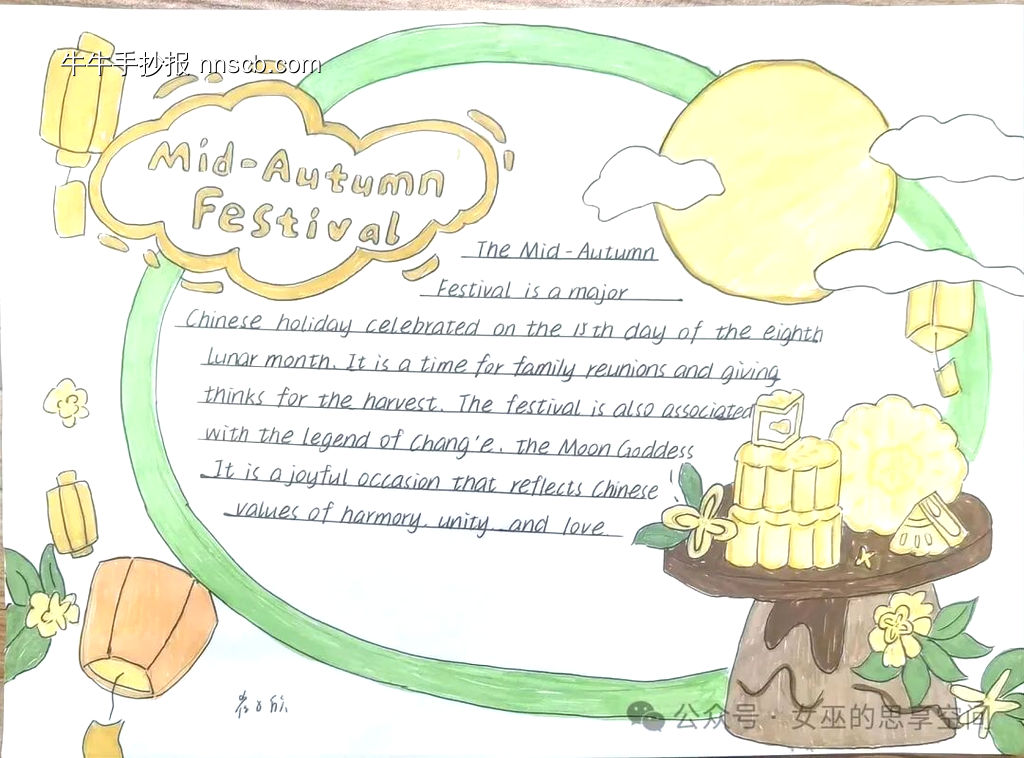 牛牛手抄报 nnscb.com
Mid-Autumn
Festival
The Mid-Autumn
Festival is a major
Chinese holiday celebrated on the 15th day of the eighth
lunar month. It is a time for family reunions and giving
thinks for the harvest. The festival is also associated
with the legend of Chang'e. the Moon Goddess
It is a joyful occasion that reflects Chinese
values of harmory. unity. and love.
公众号·女巫的思享空间